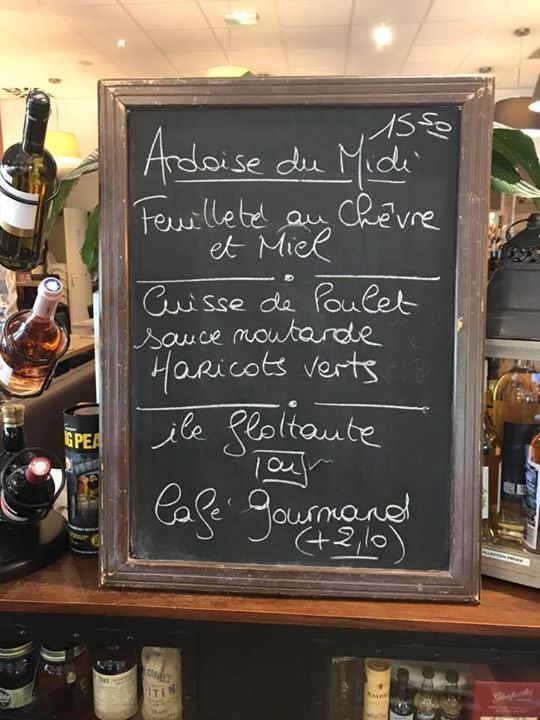 15 50
Ardoise du Midi
Feuilleté au Chêvre
et Miel
Cuisse de Poulet
sauce moutarde
Haricots verts
ile flottante
ou
Café Gourmand
(+2,10)
G PEA
COLLECTION PRIVEE
Glenfarclas